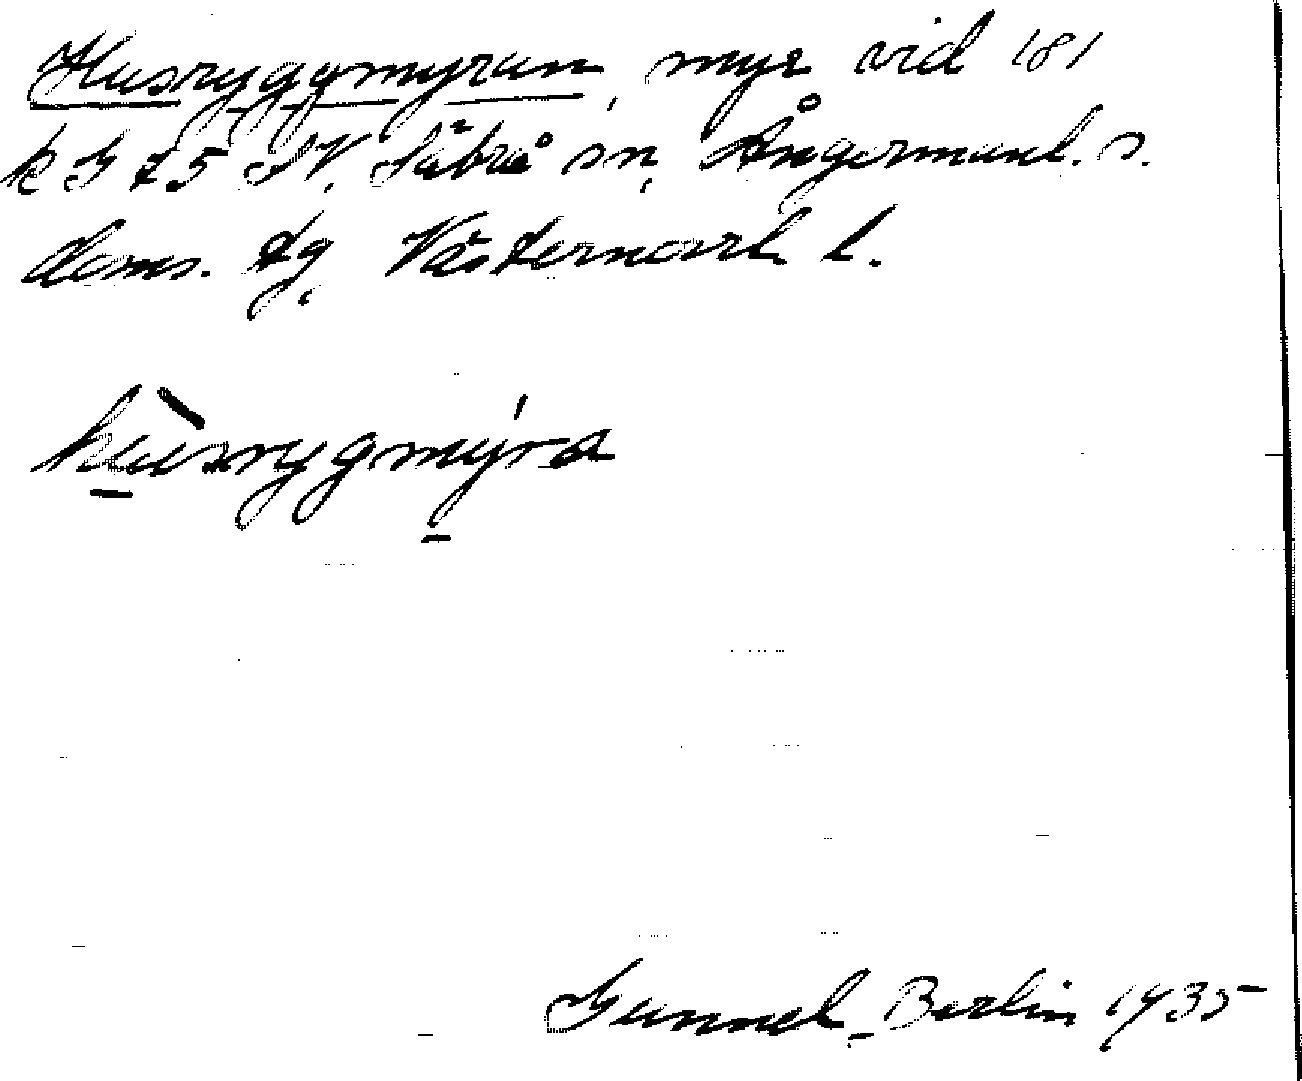 Husryggmyran, myr vid 181
k G 75 SV, Säbrå sn, Ångermanl. s.
doms. tg, Västernorrl. l.
hùsrygmýra
Gunnel Berlin 1935